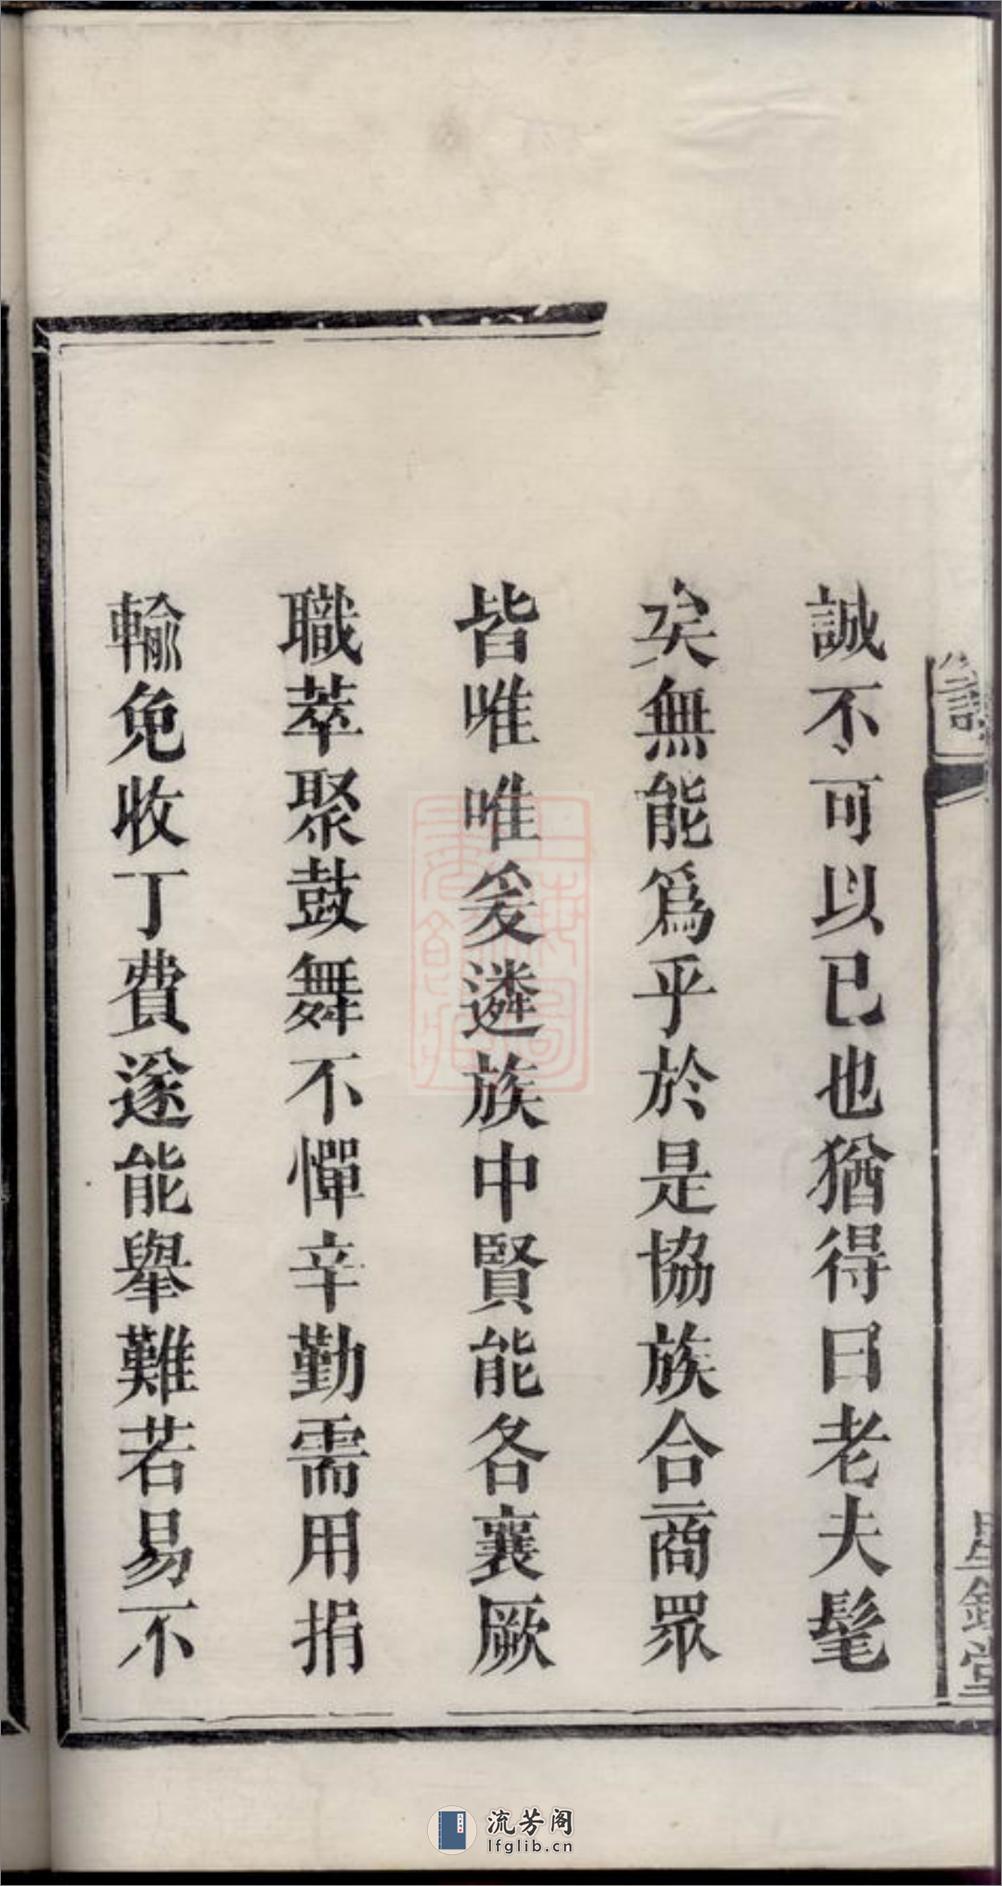 誠不可以已也猶得曰老夫髦
矣無能爲乎於是協族合商眾
皆唯唯爰遴族中賢能各襄厥
職萃聚鼓舞不憚辛勤需用捐
輸免收丁費遂能舉難若易不
流芳阁
lfglib.cn